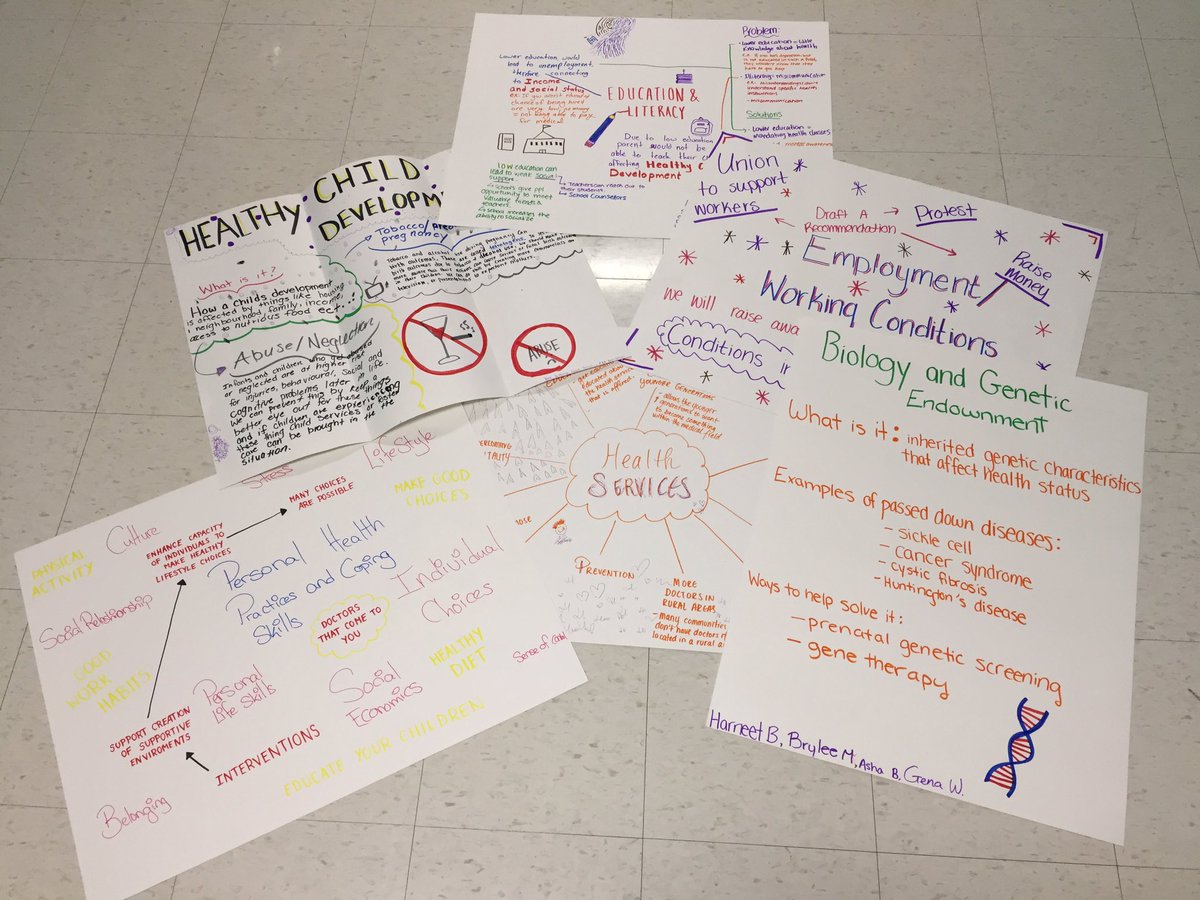 EDUCATION &
LITERACY
Lower education would
lead to unemployment,
therefore connecting
to Income
and social status
for medical
Due to low education
parent would not be
able to teach their c
affecting Healthy C
Development
Low education can
lead to weak social
support
→ schools give ppl
opportunity to meet
valuable friends &
teachers.
→ school increases the
ability to socialize
↳ Teachers can reach out to
their students.
↳ School Counselors
Problem:
• Lower education = little
knowledge about health
• miscommunication
Solutions
• Lower education =
mandating health classes
HEALTHY CHILD
DEVELOPM
What is it?
How a childs development
is affected by things like housing
neighbourhood, family, income,
acess to nutritious food ect.
Abuse/Neglection
Infants and children who get abused
or neglected are at higher risk
for injuries, behavioural, social and
cognitive problems later in life.
We can prevent this by keep a
better eye out for these things
and if children are experiencing
these thing Child Services or foster
care can be brought in the
situation.
Tobacco/
pregnancy
ABUSE
Union
to support
workers
Draft A
Recommendation
Protest
Raise
Money
Employment
Working Conditions
we will raise awa
Conditions in
Health
SERVICES
younger generations
- allows the younger
generations to want
to become something
within the medical field
PREVENTION
MORE
DOCTORS IN
RURAL AREAS
- many communities
don't have doctors
located in a rural a
Biology and Genetic
Endownment
What is it: inherited genetic characteristics
that affect health status
Examples of passed down diseases:
- sickle cell
- cancer syndrome
- cystic fibrosis
- Huntington's disease
Ways to help solve it:
- prenatal genetic screening
- gene therapy
Harneet B, Brylee M, Asha B, Gena W.
Stress
Lifestyle
MANY CHOICES
ARE POSSIBLE
MAKE GOOD
CHOICES
Culture
PHYSICAL
ACTIVITY
ENHANCE CAPACITY
OF INDIVIDUALS TO
MAKE HEALTHY
LIFESTYLE CHOICES
Personal Health
Practices and Coping
Skills
Individual
Choices
Social Relationship
DOCTORS
THAT COME TO
YOU
GOOD
WORK
HABITS
HEALTHY
DIET
Sense of Control
Personal
Life Skills
Social
Economics
SUPPORT CREATION
OF SUPPORTIVE
ENVIROMENTS
INTERVENTIONS
EDUCATE YOUR CHILDREN
Belonging